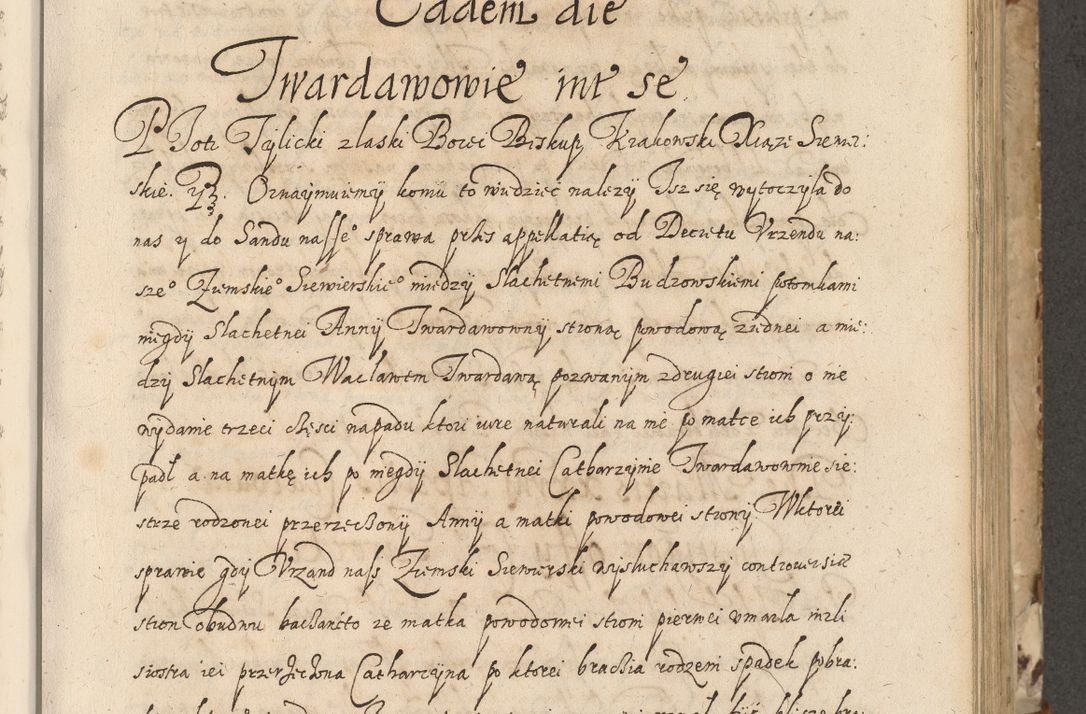 Eadem die
Twardawowie int se
Piotr Tylicki z laski Bozei Biskup Krakowski Xiąze Siewi:
skie. Oznaymuiemy komu to wiedzieć nalezy Isz się wytoczyla do
nas y do Sandu nasse° sprawa przes appellatią od Decretu Vrzendu na:
sze° Ziemskie° Siewierskie° miedzy Slachetnemi Budzowskiemi potomkami
niegdy Slachetnei Anny Twardawowny stroną powodową ziednei a mie:
dzy Slachetnym Waclawem Twardawą pozwanym z drugiei stroni o nie
wydanie trzeci częsci napadu ktori iure naturali na nie po matce ich przy:
padł a na matkę ich po niegdy Slachetnei Catharzynie Twardawownie sie:
strze rodzonei przerzeczony Anny a matki powodowei strony Wktorei
sprawie gdy Vrzand nass Ziemski Siewierski wysluchawszy controuersia
stron obudwu baczańcto ze matka powodowei stroni pierwei vmarla nizli
siostra iei przerzeczona Catharzyna po ktorei braczia rodzeni spadek pobra: